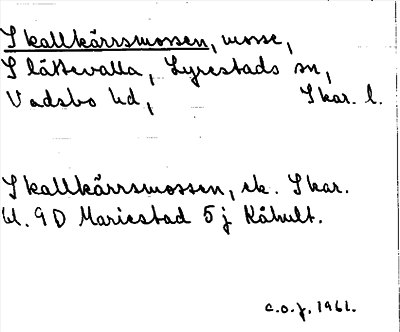 Skallkärrsmossen, mosse,
Slättevalla, Lyrestads sn,
Vadsbo hd, Skar. l.
Skallkärrsmossen, ek. Skar.
bl. 9 D Mariestad 5 j Råhult.
c.o.j. 1961.